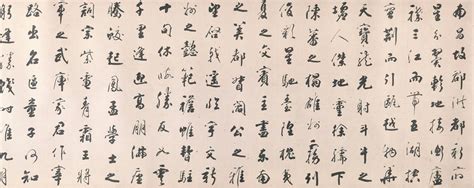 南昌故郡洪都新府
星分翼軫地接衡廬
襟三江而帶五湖控
蠻荊而引甌越物華
天寶龍光射牛斗之
墟人傑地靈徐孺下
陳蕃之榻雄州霧列
俊采星馳臺隍枕夷
夏之交賓主盡東南
之美都督閻公之雅
望棨戟遙臨宇文新
州之懿範襜帷暫駐
十旬休暇勝友如雲
千里逢迎高朋滿座
騰蛟起鳳孟學士之
詞宗紫電清霜王將
軍之武庫家君作宰
路出名區童子何知
躬逢勝餞時維九月